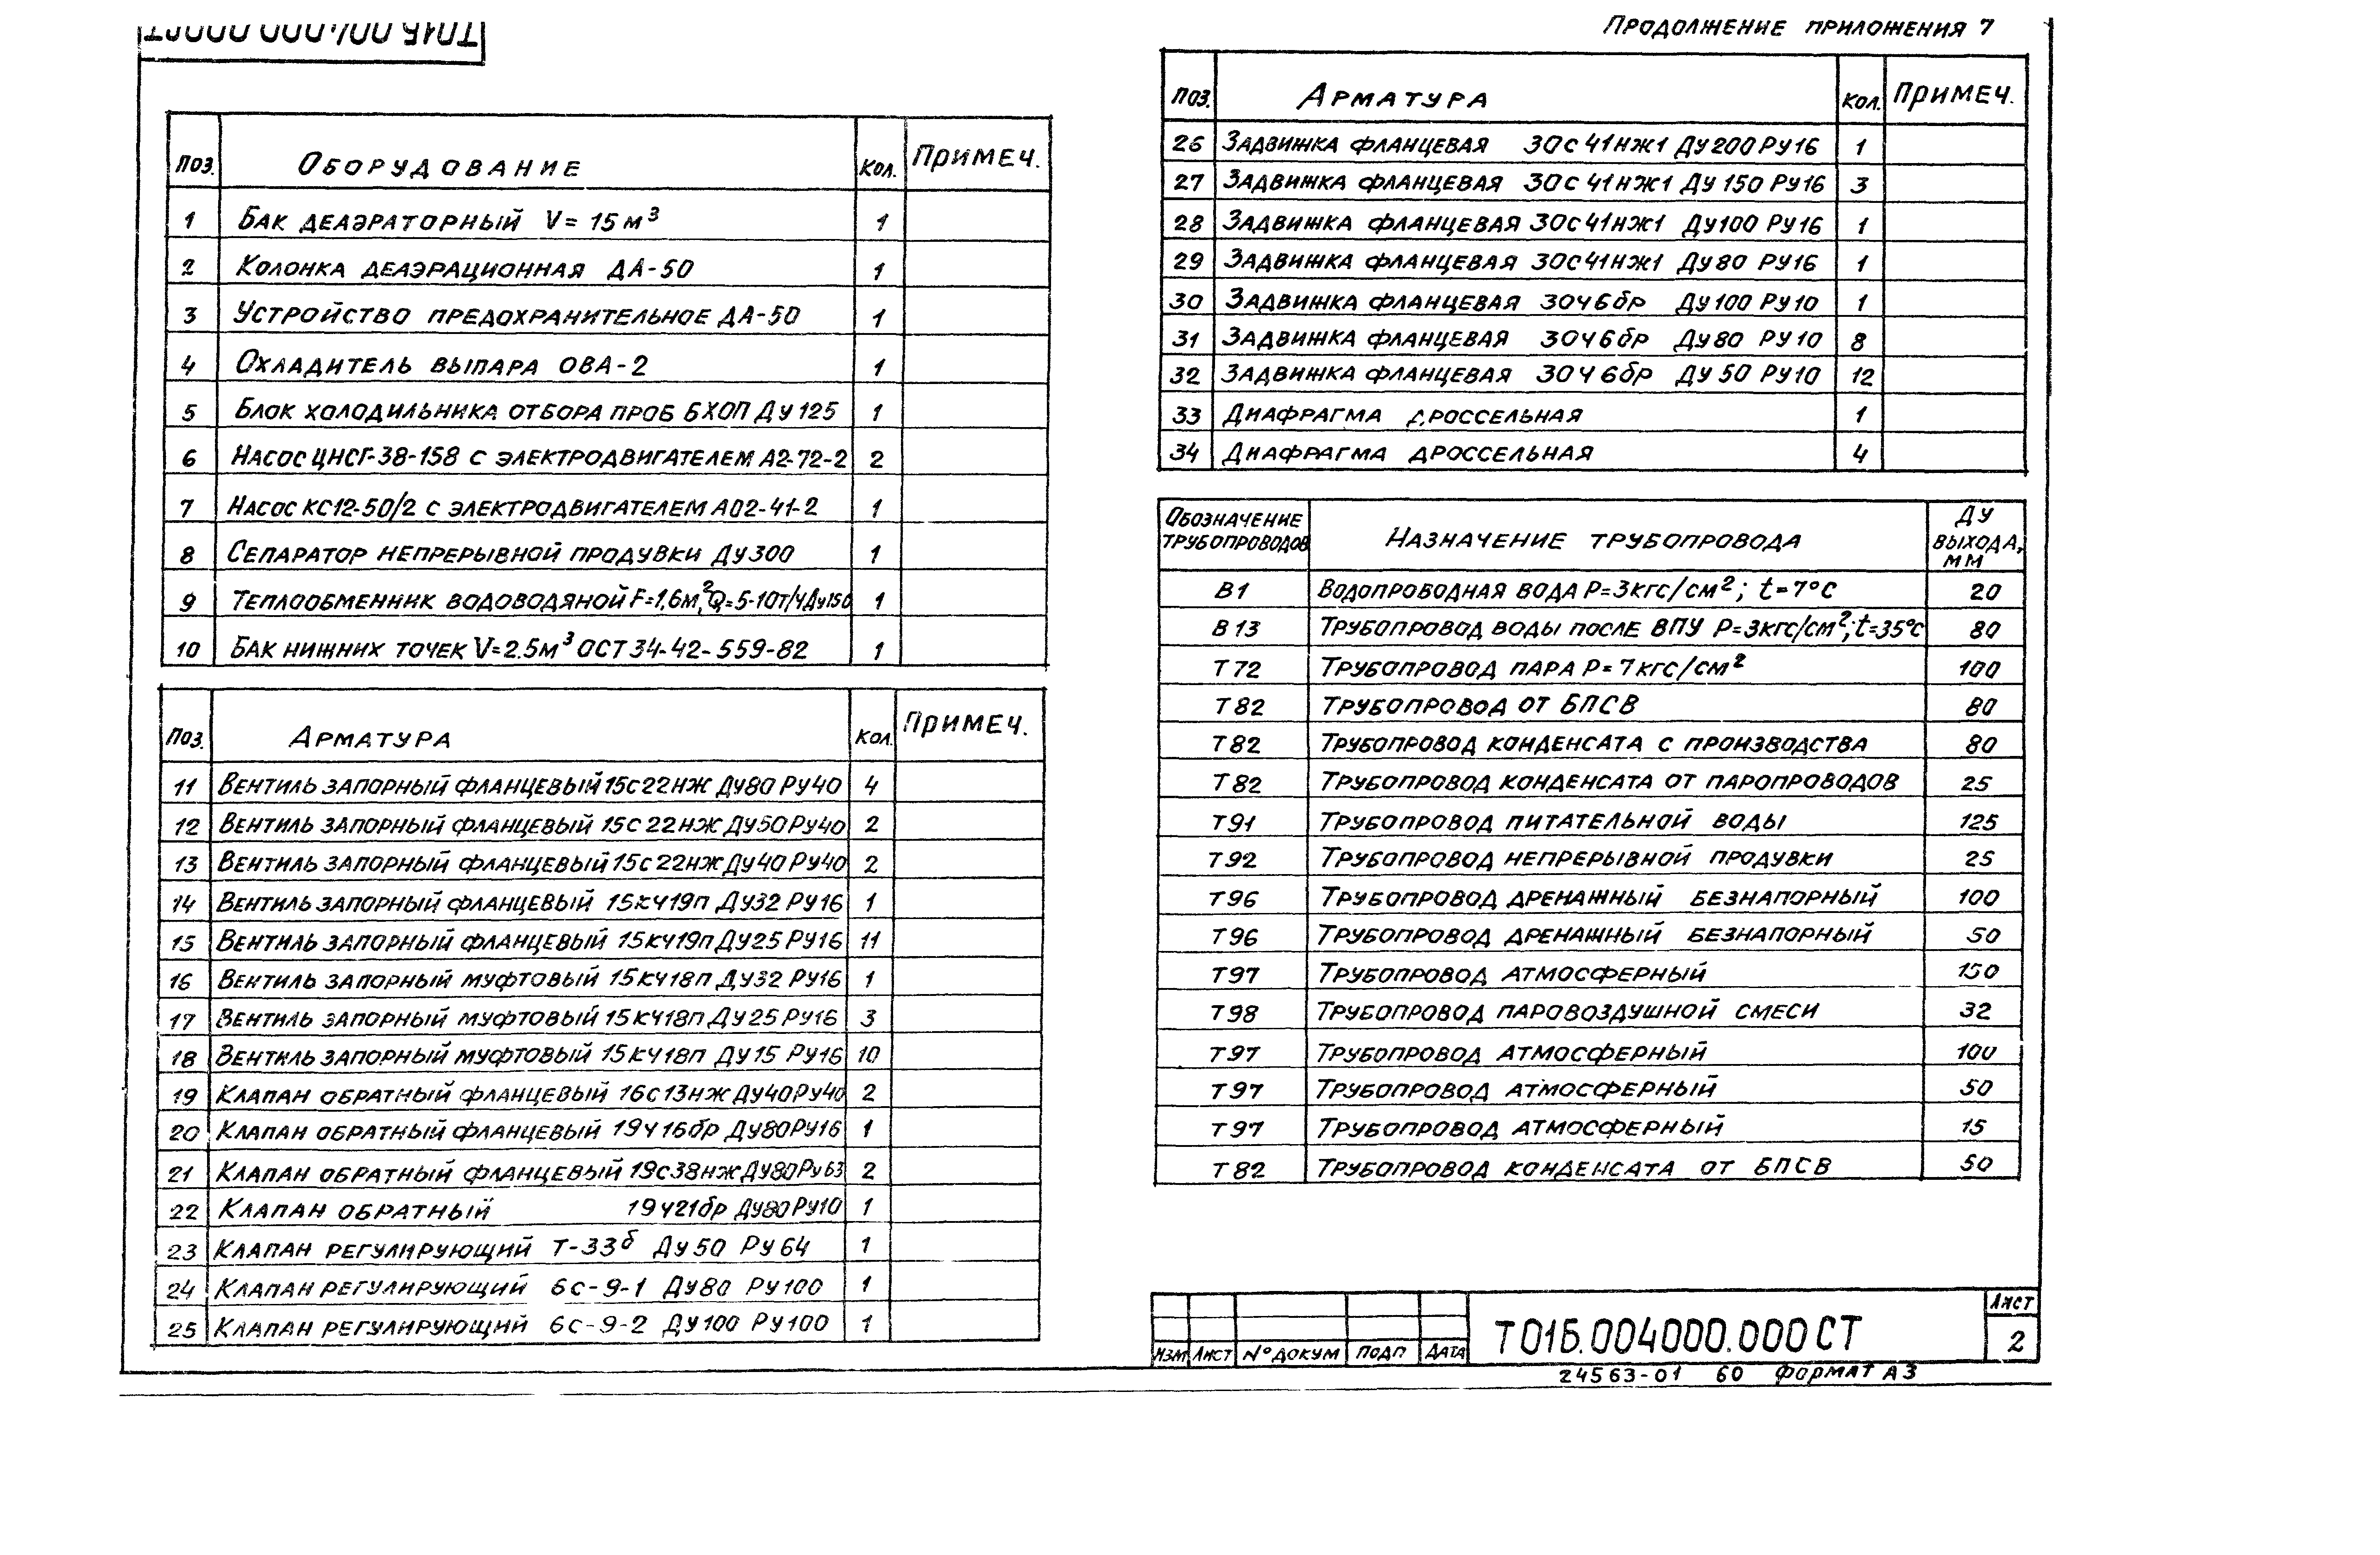 Продолжение приложения 7
Поз. Оборудование Кол. Примеч.
1 Бак деаэраторный V = 15 м³ 1
2 Колонка деаэрационная ДА-50 1
3 Устройство предохранительное ДА-50 1
4 Охладитель выпара ОВА-2 1
5 Блок холодильника отбора проб БХОП Ду 125 1
6 Насос ЦНСГ-38-158 с электродвигателем А2-72-2 2
7 Насос КС12-50/2 с электродвигателем А02-41-2 1
8 Сепаратор непрерывной продувки Ду300 1
9 Теплообменник водоводяной F=1,6м², Q=5-10т/ч Ду150 1
10 Бак нижних точек V=2.5м³ ОСТ 34-42-559-82 1
Поз. Арматура Кол. Примеч.
11 Вентиль запорный фланцевый 15с22нж Ду80 Ру40 4
12 Вентиль запорный фланцевый 15с22нж Ду50 Ру40 2
13 Вентиль запорный фланцевый 15с22нж Ду40 Ру40 2
14 Вентиль запорный фланцевый 15кч19п Ду32 Ру16 1
15 Вентиль запорный фланцевый 15кч19п Ду25 Ру16 11
16 Вентиль запорный муфтовый 15кч18п Ду32 Ру16 1
17 Вентиль запорный муфтовый 15кч18п Ду25 Ру16 3
18 Вентиль запорный муфтовый 15кч18п Ду15 Ру16 10
19 Клапан обратный фланцевый 16с13нж Ду40 Ру40 2
20 Клапан обратный фланцевый 19ч16бр Ду80 Ру16 1
21 Клапан обратный фланцевый 19с38нж Ду80 Ру63 2
22 Клапан обратный 19ч21бр Ду80 Ру10 1
23 Клапан регулирующий Т-33б Ду50 Ру64 1
24 Клапан регулирующий 6с-9-1 Ду80 Ру100 1
25 Клапан регулирующий 6с-9-2 Ду100 Ру100 1
Поз. Арматура Кол. Примеч.
26 Задвижка фланцевая 30с41нж1 Ду200 Ру16 1
27 Задвижка фланцевая 30с41нж1 Ду150 Ру16 3
28 Задвижка фланцевая 30с41нж1 Ду100 Ру16 1
29 Задвижка фланцевая 30с41нж1 Ду80 Ру16 1
30 Задвижка фланцевая 30ч6бр Ду100 Ру10 1
31 Задвижка фланцевая 30ч6бр Ду80 Ру10 8
32 Задвижка фланцевая 30ч6бр Ду50 Ру10 12
33 Диафрагма дроссельная 1
34 Диафрагма дроссельная 4
Обозначение трубопроводов Назначение трубопровода Ду выхода, мм
В1 Водопроводная вода Р=3кгс/см²; t=7°С 20
В13 Трубопровод воды после ВПУ Р=3кгс/см²; t=35°С 80
Т72 Трубопровод пара Р=7кгс/см² 100
Т82 Трубопровод от БПСВ 80
Т82 Трубопровод конденсата с производства 80
Т82 Трубопровод конденсата от паропроводов 25
Т91 Трубопровод питательной воды 125
Т92 Трубопровод непрерывной продувки 25
Т96 Трубопровод дренажный безнапорный 100
Т96 Трубопровод дренажный безнапорный 50
Т97 Трубопровод атмосферный 150
Т98 Трубопровод паровоздушной смеси 32
Т97 Трубопровод атмосферный 100
Т97 Трубопровод атмосферный 50
Т97 Трубопровод атмосферный 15
Т82 Трубопровод конденсата от БПСВ 50
Изм Лист N° докум Подп Дата
Т01Б.004000.000СТ
Лист
2
24563-01 60 Формат А3